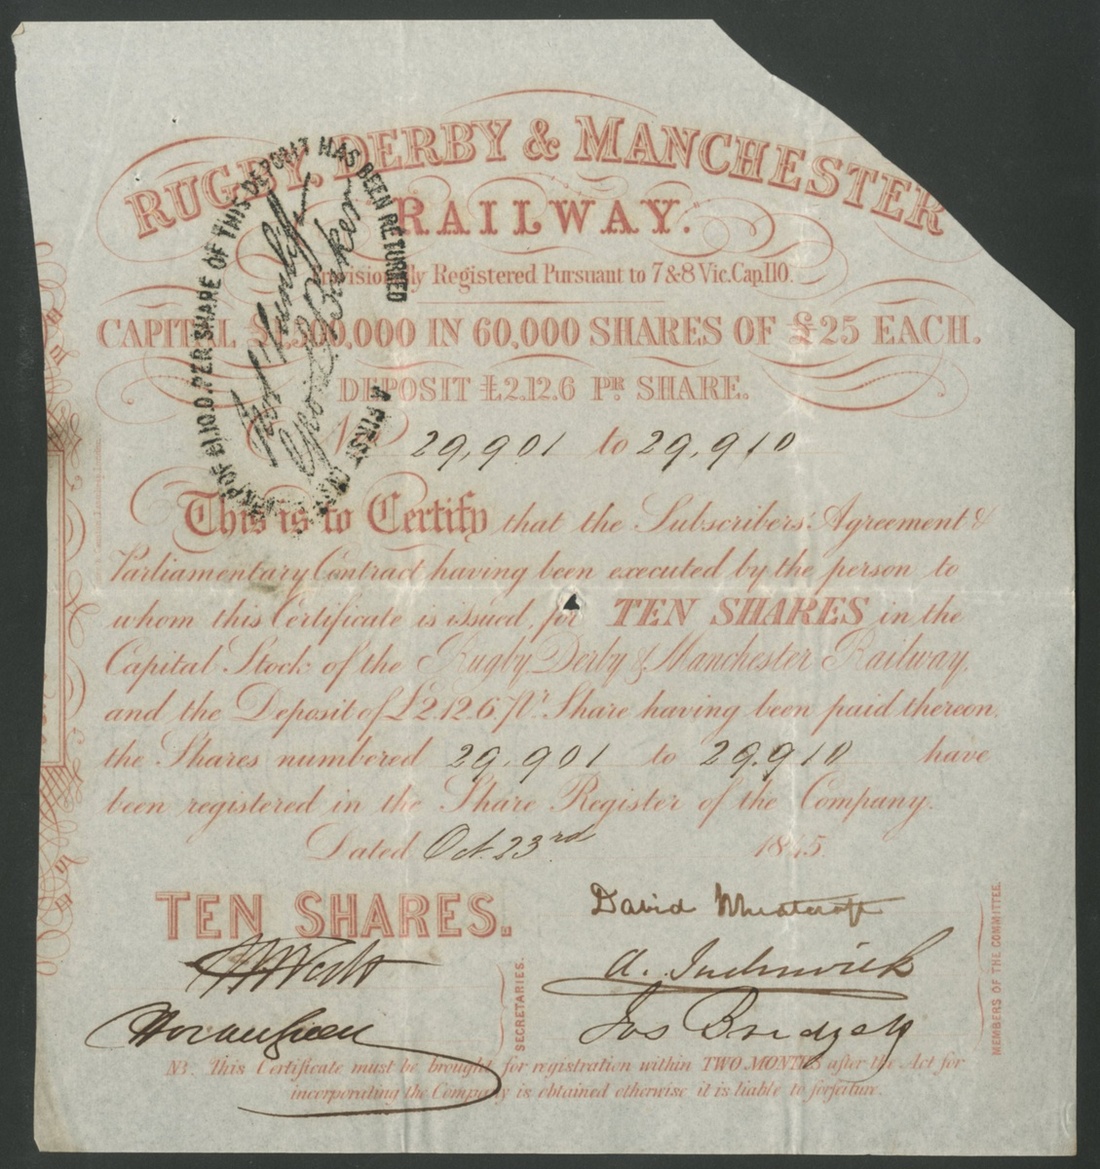 RUGBY, DERBY & MANCHESTER
RAILWAY.
Provisionally Registered Pursuant to 7 & 8 Vic. Cap. 110.
CAPITAL £1,500,000 IN 60,000 SHARES OF £25 EACH.
DEPOSIT £2.12.6 PR SHARE.
No 29,901 to 29,910
This is to Certify that the Subscribers' Agreement &
Parliamentary Contract having been executed by the person to
whom this Certificate is issued, for TEN SHARES in the
Capital Stock of the Rugby, Derby & Manchester Railway,
and the Deposit of £2.12.6. Pr Share having been paid thereon,
the Shares numbered 29,901 to 29,910 have
been registered in the Share Register of the Company.
Dated Oct. 23rd 1845.
TEN SHARES.
SECRETARIES.
David Wheatcroft
Jos Bridgett
MEMBERS OF THE COMMITTEE.
NB. This Certificate must be brought for registration within TWO MONTHS after the Act for
incorporating the Company is obtained otherwise it is liable to forfeiture.
A FIRST OF £1.10.0. PER SHARE OF THIS DEPOSIT HAS BEEN RETURNED